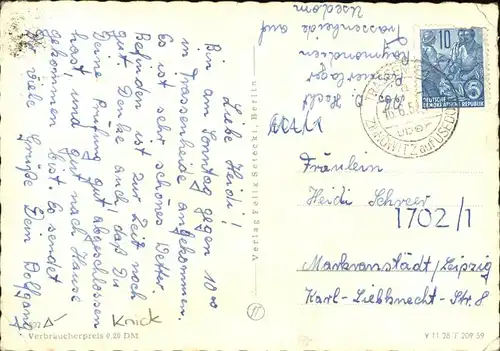 Liebe Heidi!
Bin am Sonntag gegen 10 00
in Trassenheide angekommen.
Es ist sehr schönes Wetter.
Befinden ist zur Zeit noch
gut. Denke auch, daß Du
Deine Prüfung gut abgeschlossen
hast, und gut nach Hause
gekommen bist. Es sendet
Dir viele Grüße Dein Wolfgang
Verbraucherpreis 0,20 DM
Knick
Verlag Felix Setecki, Berlin
11
Trassenheide auf
Usedom
10
DEUTSCHE
DEMOKRATISCHE REPUBLIK
5
ZINNOWITZ a. USEDOM
über
Fräulein
Heidi Schreer
1702/1
Markranstädt/Leipzig
Karl-Liebknecht-Str. 8
V 11 28 T 209 59